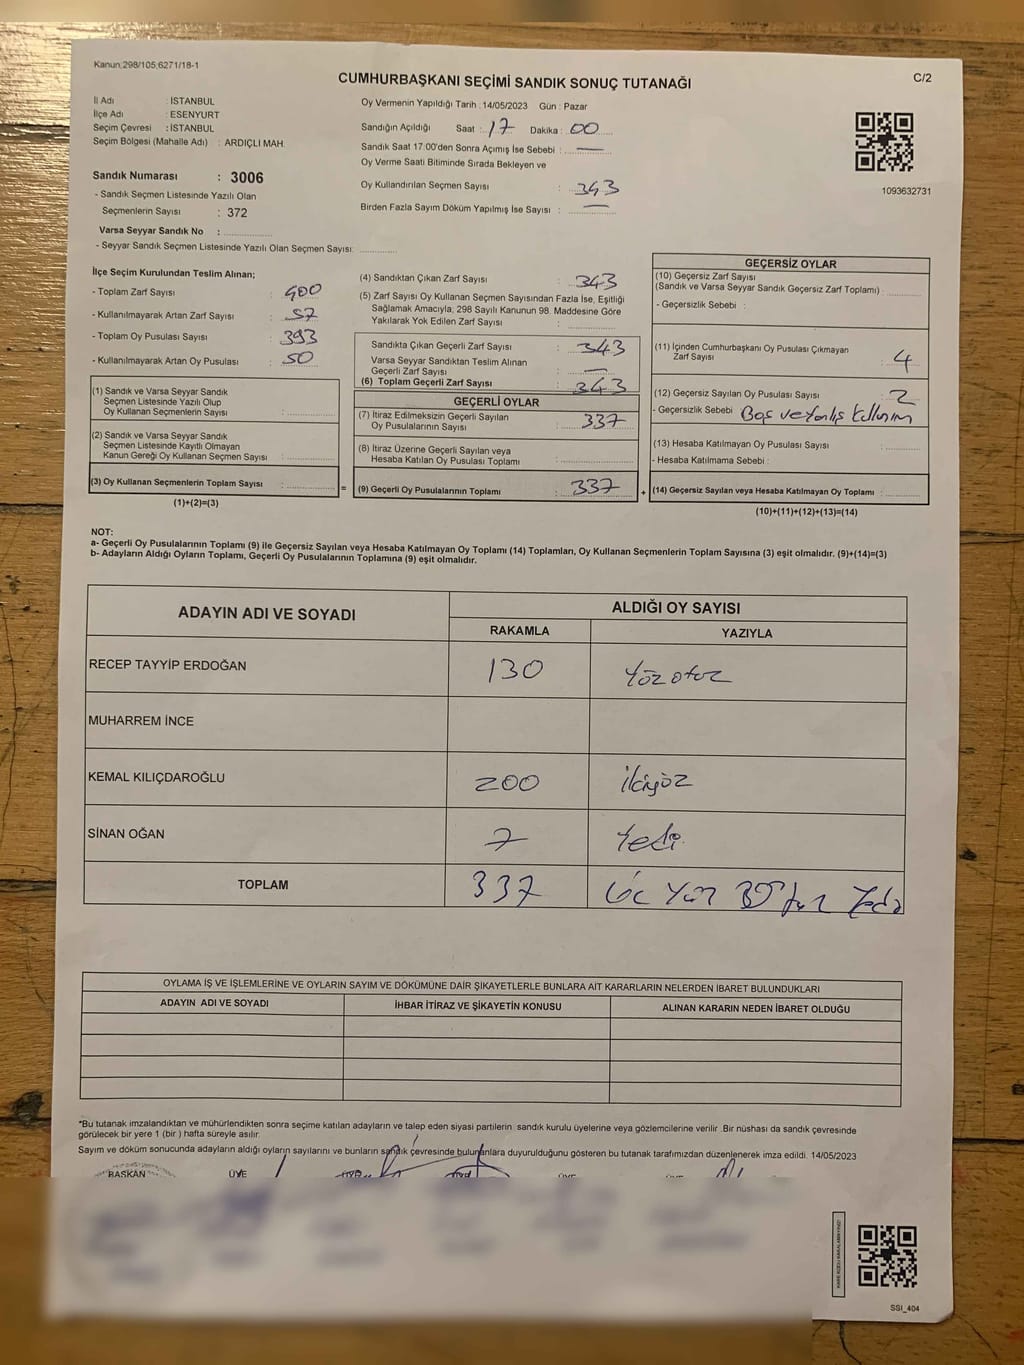 Kanun:298/105;6271/18-1
CUMHURBAŞKANI SEÇİMİ SANDIK SONUÇ TUTANAĞI
C/2
İl Adı : İSTANBUL
İlçe Adı : ESENYURT
Seçim Çevresi : İSTANBUL
Seçim Bölgesi (Mahalle Adı) : ARDIÇLI MAH.
Sandık Numarası : 3006
- Sandık Seçmen Listesinde Yazılı Olan
Seçmenlerin Sayısı : 372
Varsa Seyyar Sandık No :
- Seyyar Sandık Seçmen Listesinde Yazılı Olan Seçmen Sayısı:
Oy Vermenin Yapıldığı Tarih :14/05/2023 Gün : Pazar
Sandığın Açıldığı Saat : 17 Dakika : 00
Sandık Saat 17:00'den Sonra Açımış İse Sebebi : —
Oy Verme Saati Bitiminde Sırada Bekleyen ve
Oy Kullandırılan Seçmen Sayısı : 343
Birden Fazla Sayım Döküm Yapılmış İse Sayısı : —
1093632731
İlçe Seçim Kurulundan Teslim Alınan;
- Toplam Zarf Sayısı : 400
- Kullanılmayarak Artan Zarf Sayısı : 57
- Toplam Oy Pusulası Sayısı : 393
- Kullanılmayarak Artan Oy Pusulası : 50
(1) Sandık ve Varsa Seyyar Sandık
Seçmen Listesinde Yazılı Olup
Oy Kullanan Seçmenlerin Sayısı :
(2) Sandık ve Varsa Seyyar Sandık
Seçmen Listesinde Kayıtlı Olmayan
Kanun Gereği Oy Kullanan Seçmen Sayısı :
(3) Oy Kullanan Seçmenlerin Toplam Sayısı :
(1)+(2)=(3)
(4) Sandıktan Çıkan Zarf Sayısı : 343
(5) Zarf Sayısı Oy Kullanan Seçmen Sayısından Fazla İse, Eşitliği
Sağlamak Amacıyla; 298 Sayılı Kanunun 98. Maddesine Göre
Yakılarak Yok Edilen Zarf Sayısı :
Sandıkta Çıkan Geçerli Zarf Sayısı : 343
Varsa Seyyar Sandıktan Teslim Alınan
Geçerli Zarf Sayısı : —
(6) Toplam Geçerli Zarf Sayısı : 343
GEÇERLİ OYLAR
(7) İtiraz Edilmeksizin Geçerli Sayılan
Oy Pusulalarının Sayısı : 337
(8) İtiraz Üzerine Geçerli Sayılan veya
Hesaba Katılan Oy Pusulası Toplamı :
=
(9) Geçerli Oy Pusulalarının Toplamı : 337
+
GEÇERSİZ OYLAR
(10) Geçersiz Zarf Sayısı
(Sandık ve Varsa Seyyar Sandık Geçersiz Zarf Toplamı) :
- Geçersizlik Sebebi :
(11) İçinden Cumhurbaşkanı Oy Pusulası Çıkmayan
Zarf Sayısı : 4
(12) Geçersiz Sayılan Oy Pusulası Sayısı : 2
- Geçersizlik Sebebi Boş ve Yanlış Kullanım
(13) Hesaba Katılmayan Oy Pusulası Sayısı :
- Hesaba Katılmama Sebebi :
(14) Geçersiz Sayılan veya Hesaba Katılmayan Oy Toplamı :
(10)+(11)+(12)+(13)=(14)
NOT:
a- Geçerli Oy Pusulalarının Toplamı (9) ile Geçersiz Sayılan veya Hesaba Katılmayan Oy Toplamı (14) Toplamları, Oy Kullanan Seçmenlerin Toplam Sayısına (3) eşit olmalıdır. (9)+(14)=(3)
b- Adayların Aldığı Oyların Toplamı, Geçerli Oy Pusulalarının Toplamına (9) eşit olmalıdır.
ADAYIN ADI VE SOYADI
ALDIĞI OY SAYISI
RAKAMLA YAZIYLA
RECEP TAYYİP ERDOĞAN 130 Yüzotuz
MUHARREM İNCE
KEMAL KILIÇDAROĞLU 200 ikiyüz
SİNAN OĞAN 7 Yedi
TOPLAM 337 Üç Yüz Otuz Yedi
OYLAMA İŞ VE İŞLEMLERİNE VE OYLARIN SAYIM VE DÖKÜMÜNE DAİR ŞİKAYETLERLE BUNLARA AİT KARARLARIN NELERDEN İBARET BULUNDUKLARI
ADAYIN ADI VE SOYADI İHBAR İTİRAZ VE ŞİKAYETİN KONUSU ALINAN KARARIN NEDEN İBARET OLDUĞU
*Bu tutanak imzalandıktan ve mühürlendikten sonra seçime katılan adayların ve talep eden siyasi partilerin sandık kurulu üyelerine veya gözlemcilerine verilir .Bir nüshası da sandık çevresinde
görülecek bir yere 1 (bir ) hafta süreyle asılır.
Sayım ve döküm sonucunda adayların aldığı oyların sayılarını ve bunların sandık çevresinde bulunanlara duyurulduğunu gösteren bu tutanak tarafımızdan düzenlenerek imza edildi. 14/05/2023
BAŞKAN ÜYE ÜYE ÜYE ÜYE ÜYE
SSI_404